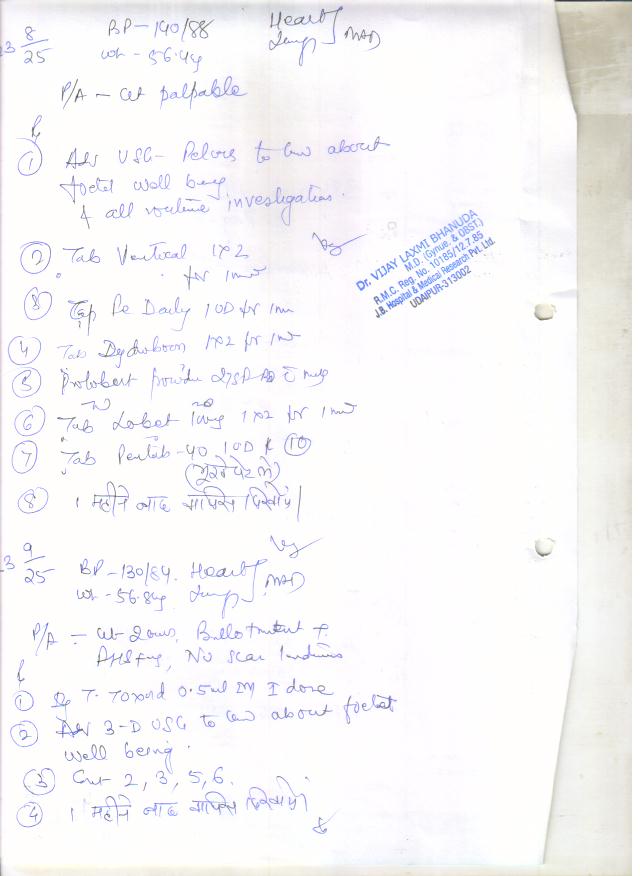 3 8/25 BP - 140/88 Heart
wt - 56.4kg Lungs } NAD
P/A - ut palpable
Rx
① Adv USG - Pelvis to know about
foetal well being
& all routine investigation.
② Tab Vertical 1x2
for 1
③ Cap Pe Daily 1 OD for 1
④ Tab 1x2 for 1
⑤ powder 2TSP
⑥ Tab Lobet 100mg 1x2 for 1
⑦ Tab Pentab-40 1 OD x ⑩
(भूखे पेट में)
⑧ 1 महीने बाद वापिस दिखायें
Dr. VIJAY LAXMI BHANUDA
M.D. (Gynae. & OBST.)
R.M.C. Reg. No. 10185/12.7.85
J.B. Hospital & Medical Research Pvt. Ltd.
UDAIPUR-313002
3 9/25 BP - 130/84. Heart
wt - 56.8kg Lungs } NAD
P/A - ut Ballotment +
No scar
Rx
① T. Toxoid 0.5ml IM I dose
② Adv 3-D USG to know about foetal
well being.
③ Cont 2, 3, 5, 6.
④ 1 महीने बाद वापिस दिखायें